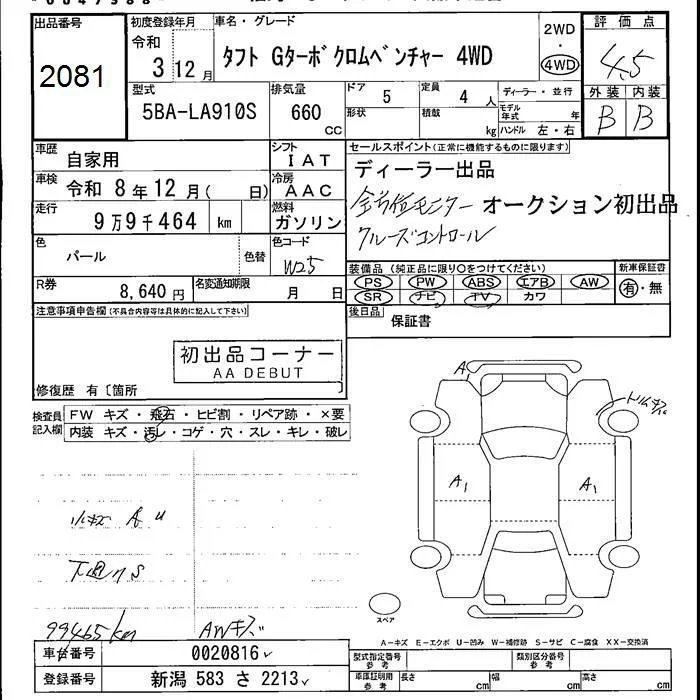 出品番号
2081
初度登録年月
令和
3 12 月
車名・グレード
タフト Gターボ クロムベンチャー 4WD
2WD
・
4WD
評価点
4.5
外装 内装
B B
型式
5BA-LA910S
排気量
660
CC
ドア
5
形状
定員
4 人
積載
kg
ディーラー・並行
モデル年式 年
ハンドル 左・右
車歴
自家用
シフト
IAT
車検
令和 8年 12月( 日)
冷房
AAC
走行
9万9千464 km
燃料
ガソリン
色
パール
色替
色コード
W25
R券
8,640 円
名変通知期限
月 日
セールスポイント(正常に機能するものに限ります)
ディーラー出品
全方位モニター オークション初出品
クルーズコントロール
装備品(純正品に限り○をつけてください)
新車保証書
PS PW ABS エアB AW
SR ナビ TV カワ
有・無
後日品
保証書
注意事項申告欄(不具合内容等は具体的に記入して下さい)
初出品コーナー
AA DEBUT
修復歴 有〔箇所 〕
検査員記入欄
FW キズ・飛石・ヒビ割・リペア跡・×要
内装 キズ・汚レ・コゲ・穴・スレ・キレ・破レ
小キズ A U
下廻りS
99465km
AWキズ
A
トリムキズ
A1
A1
スペア
A-キズ E-エクボ U-凹み W-補修跡 S-サビ C-腐食 XX-交換済
車台番号
0020816
登録番号
新潟 583 さ 2213
型式指定番号
参考
類別区分番号
参考
車庫証明用
参考
長さ cm
幅 cm
高さ cm